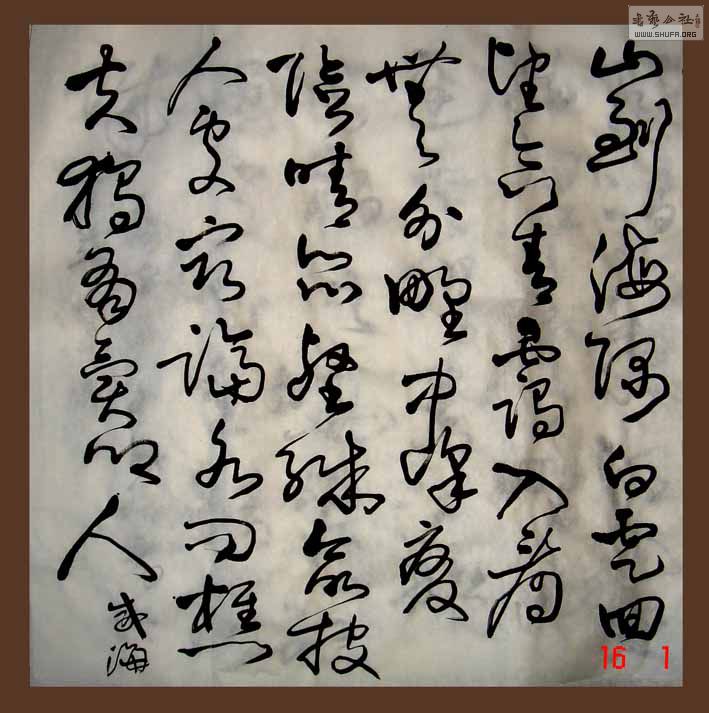 山到海隅白雲回
望合青靄入看
無分野中峰變
陰晴众壑殊欲投
人處宿隔水問樵
夫獨有人
海
書藝公社
WWW.SHUFA.ORG
16 1